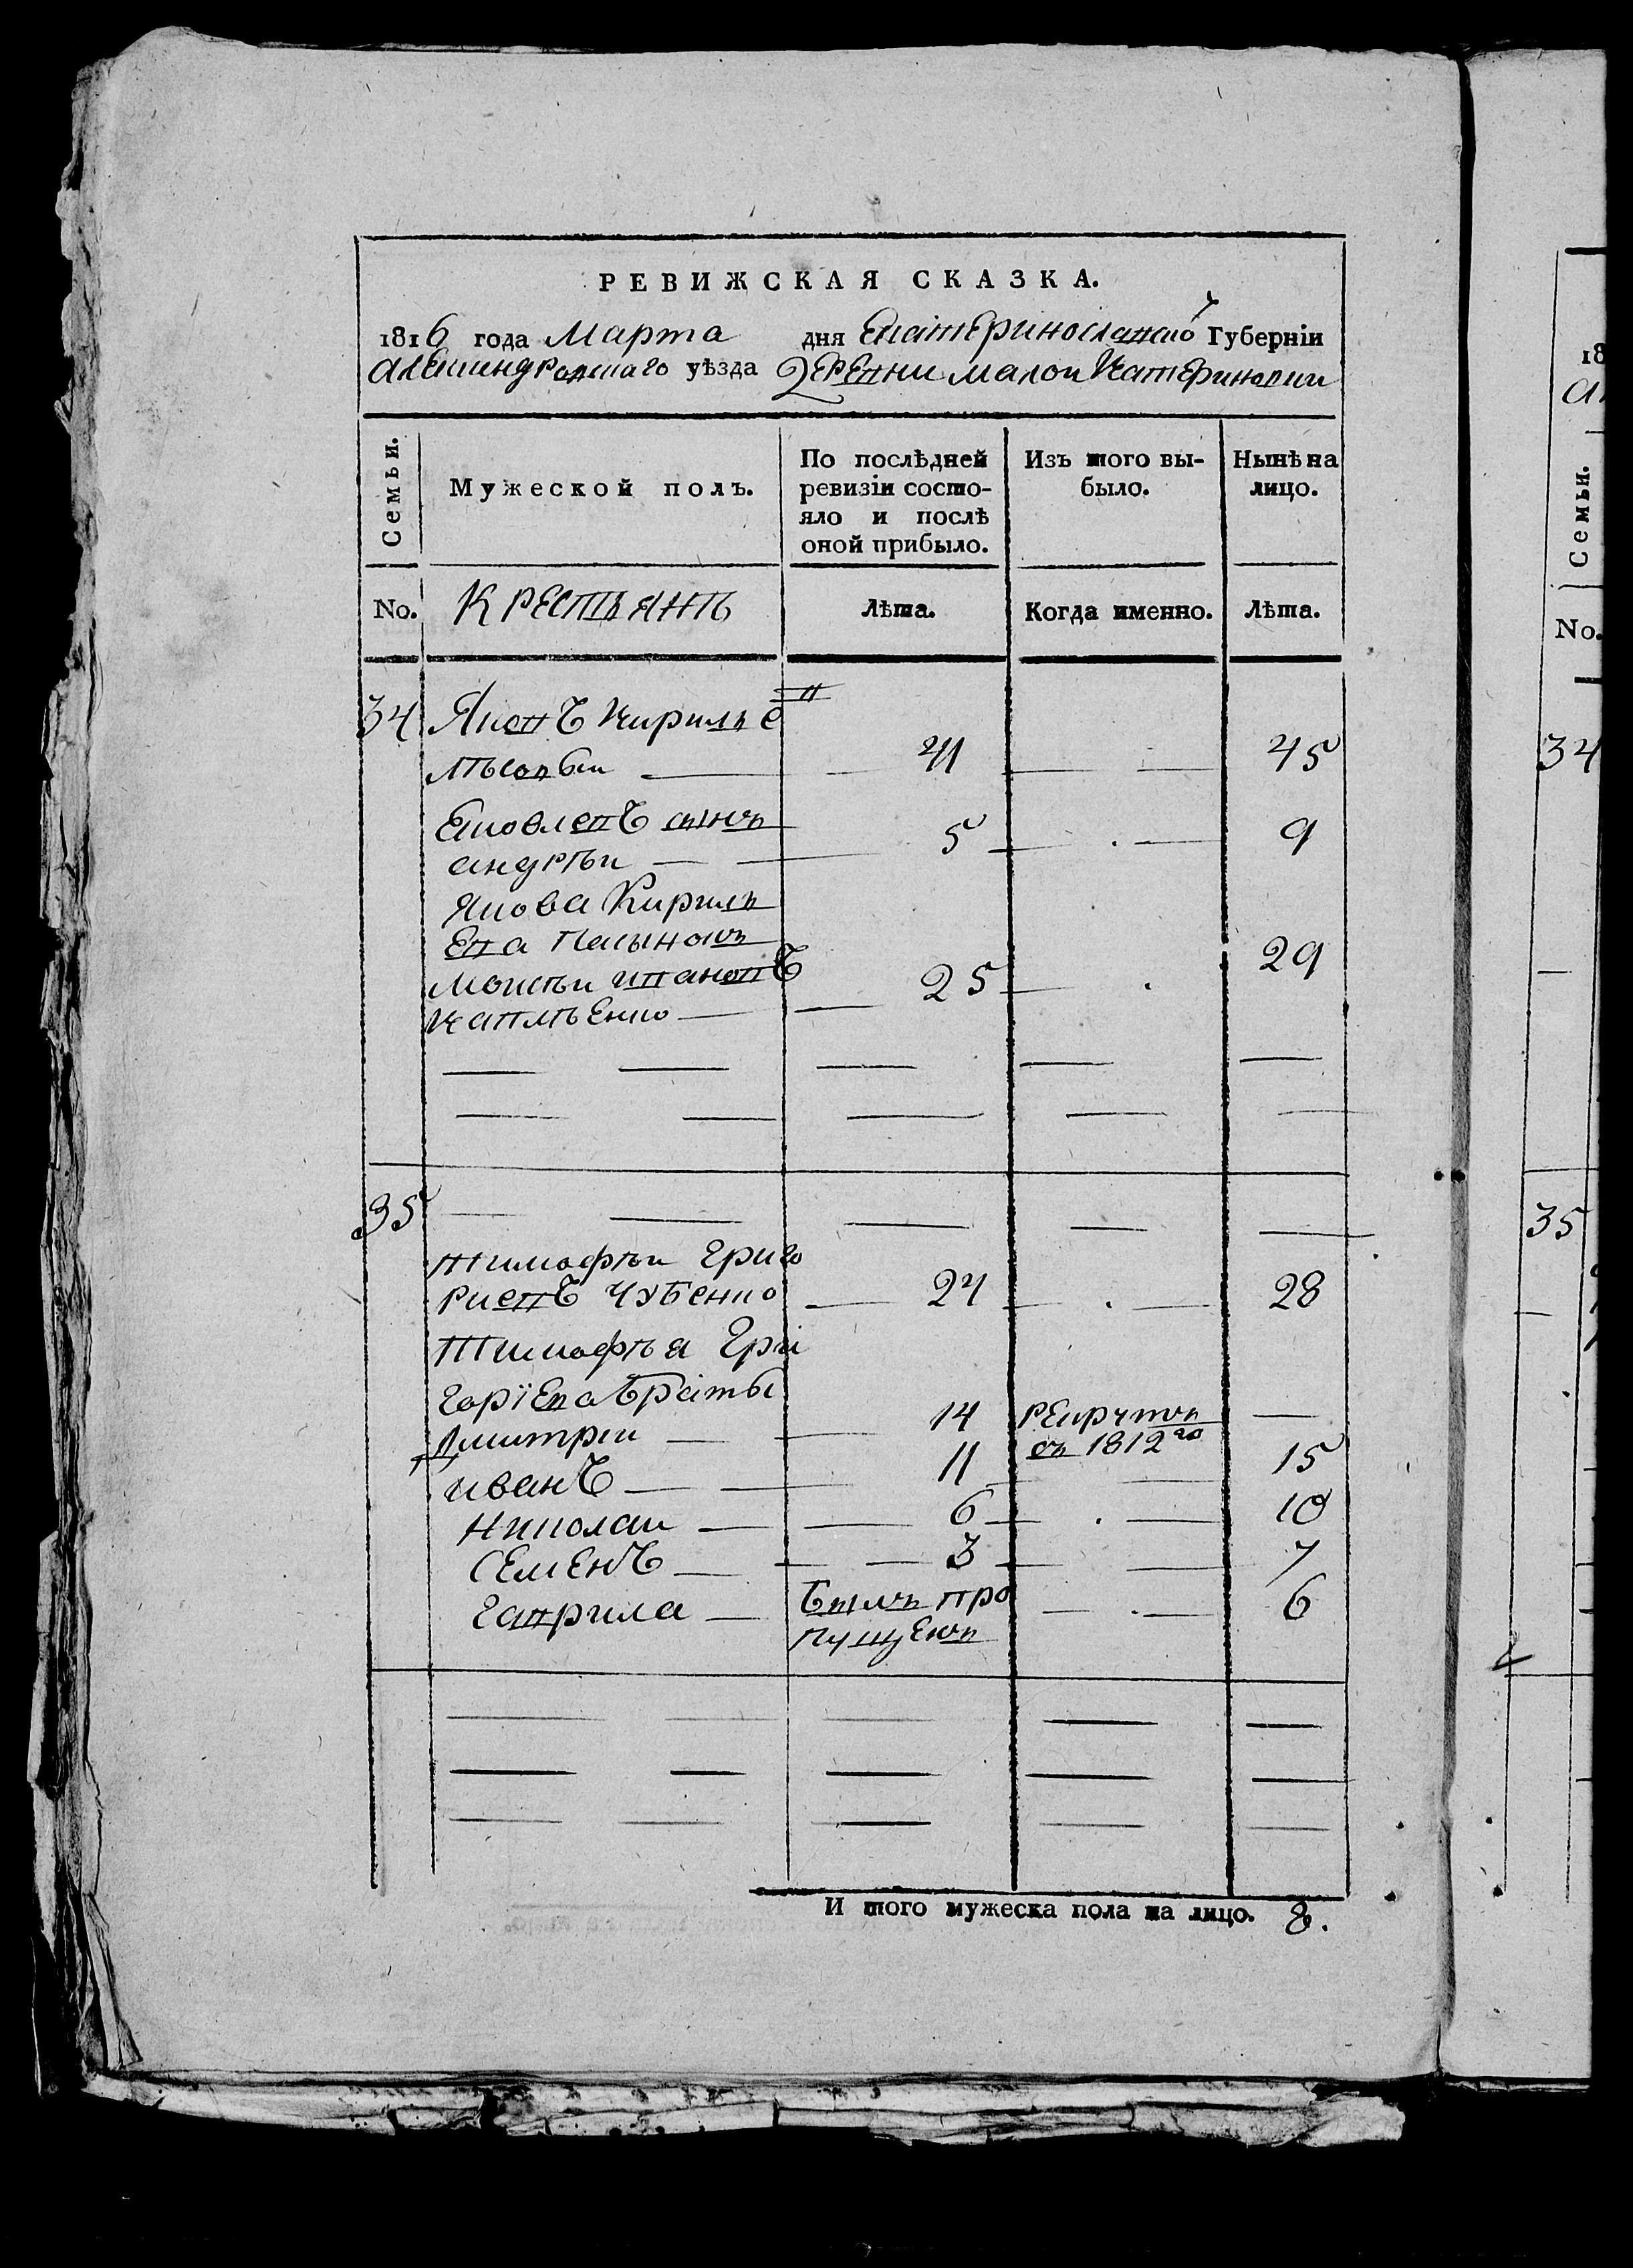 РЕВИЖСКАЯ СКАЗКА.
1816 года Марта дня Екатеринославской Губерніи
александровскаго уѣзда деревни малои Катериновки
Семьи.
Мужеской полъ.
По послѣдней ревизіи состояло и послѣ оной прибыло.
Изъ того выбыло.
Нынѣ на лицо.
No.
КРЕСТЬЯНЪ
Лѣта.
Когда именно.
Лѣта.
34 Яковъ Кирилъе
въ
лѣсовыи 41 45
Яковлевъ сынъ
андрѣи 5 9
Якова Кирилъ
ева Пасынокъ
Моисѣи ивановъ 25 29
35
тимофѣи Григо
риевъ Чубенко 24 28
Тимофѣя Гри
горїева братьы
Дмитрии 14 рекрутъ
въ 1812го
иванъ 11 15
николаи 6 10
Семенъ 3 7
гаврила былъ про 6
пущенъ
И того мужеска пола на лицо. 8.
18
Семьи.
No.
34
35